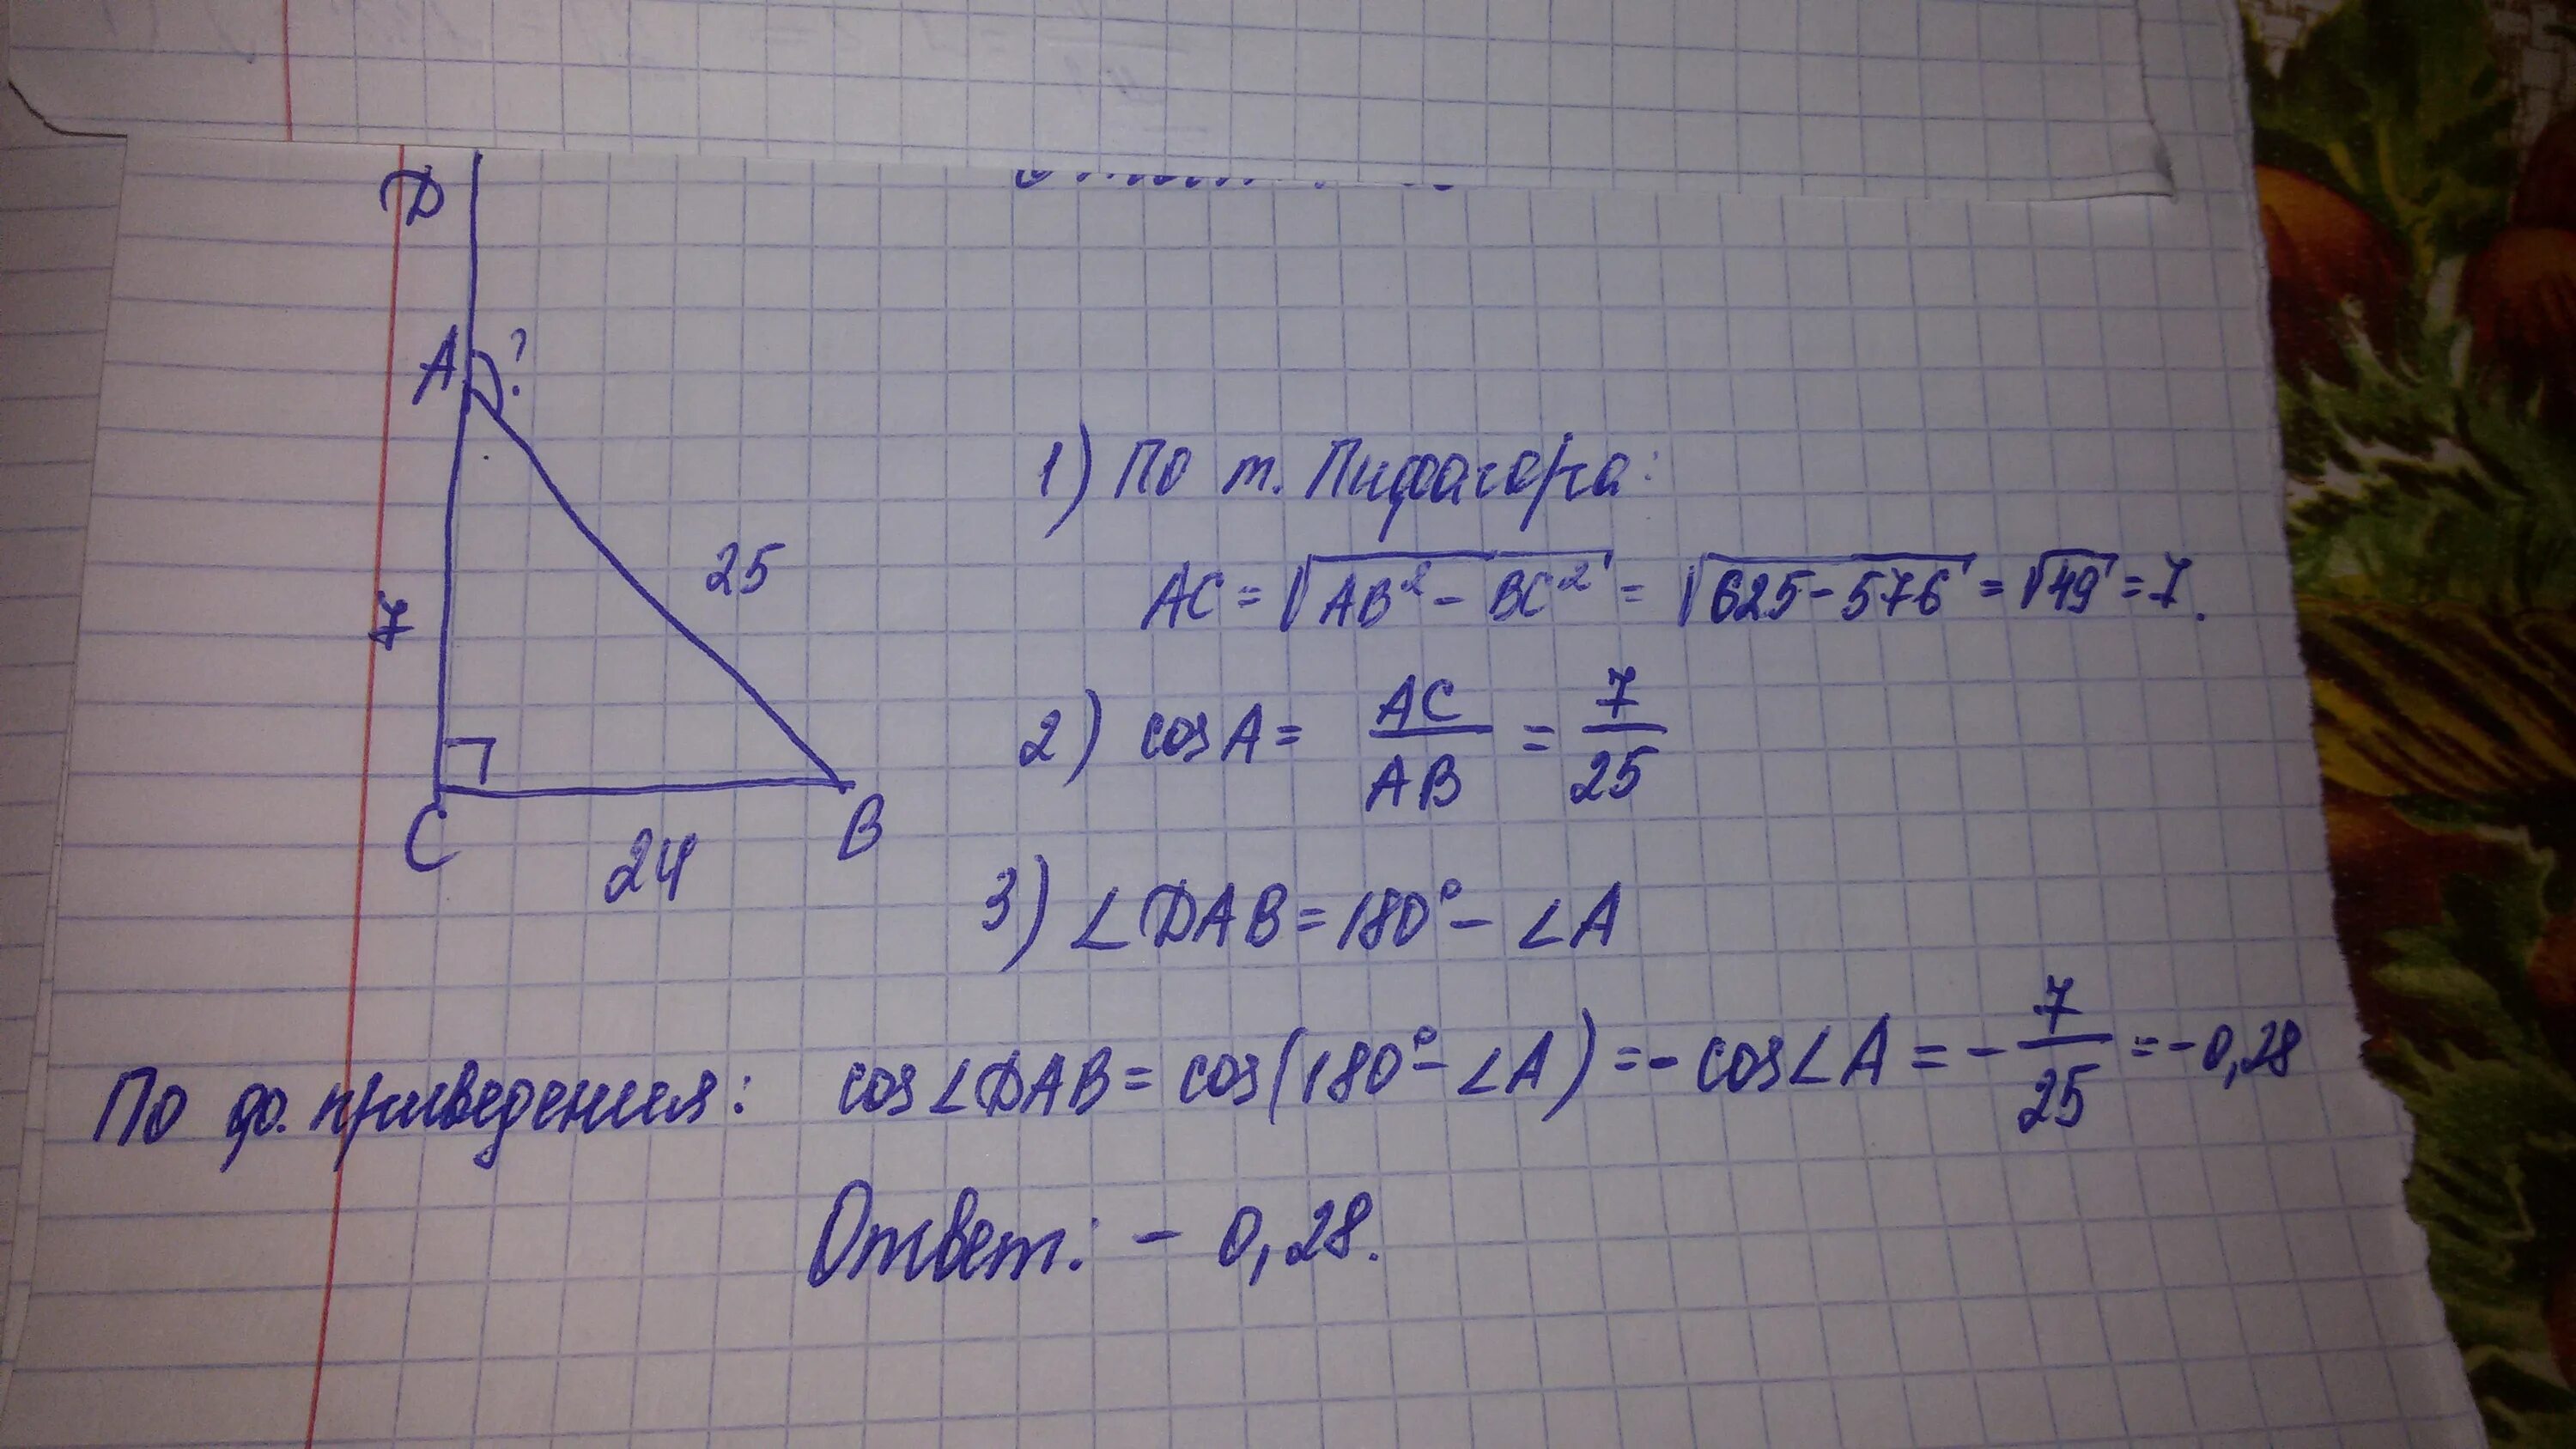 D
A ?
1) По т. Пифагора:
25
AC = √(AB² - BC²) = √(625-576) = √49 = 7.
7
2) cos A = AC/AB = 7/25
C
B
24
3) ∠DAB = 180° - ∠A
По ф. приведения: cos∠DAB = cos(180° - ∠A) = - cos∠A = - 7/25 = -0,28
Ответ: - 0,28.